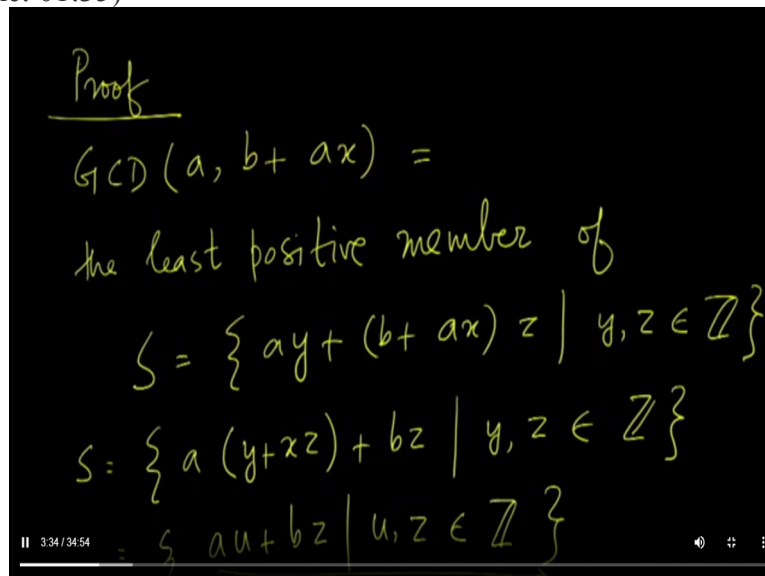 Proof
GCD (a, b + ax) =
the least positive member of
S = { ay + (b + ax) z | y, z ∈ ℤ }
S = { a (y + xz) + bz | y, z ∈ ℤ }
= { au + bz | u, z ∈ ℤ }
3:34 / 34:54